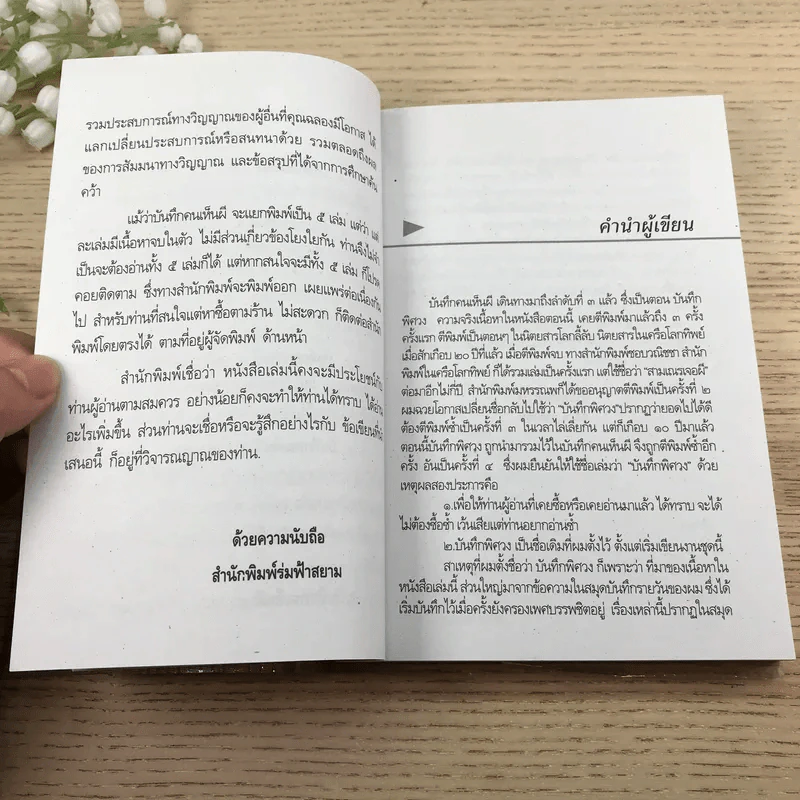 รวมประสบการณ์ทางวิญญาณของผู้อื่นที่คุณฉลองมีโอกาส ได้
แลกเปลี่ยนประสบการณ์หรือสนทนาด้วย รวมตลอดถึงผล
ของการสัมมนาทางวิญญาณ และข้อสรุปที่ได้จากการศึกษาค้น
คว้า
แม้ว่าบันทึกคนเห็นผี จะแยกพิมพ์เป็น ๕ เล่ม แต่ว่า แต่
ละเล่มมีเนื้อหาจบในตัว ไม่มีส่วนเกี่ยวข้องโยงใยกัน ท่านจึงไม่จำ
เป็นจะต้องอ่านทั้ง ๕ เล่มก็ได้ แต่หากสนใจจะมีทั้ง ๕ เล่ม ก็โปรด
คอยติดตาม ซึ่งทางสำนักพิมพ์จะพิมพ์ออก เผยแพร่ต่อเนื่องกัน
ไป สำหรับท่านที่สนใจแต่หาซื้อตามร้าน ไม่สะดวก ก็ติดต่อสำนัก
พิมพ์โดยตรงได้ ตามที่อยู่ผู้จัดพิมพ์ ด้านหน้า
สำนักพิมพ์เชื่อว่า หนังสือเล่มนี้คงจะมีประโยชน์กับ
ท่านผู้อ่านตามสมควร อย่างน้อยก็คงจะทำให้ท่านได้ทราบ ได้อ่าน
อะไรเพิ่มขึ้น ส่วนท่านจะเชื่อหรือจะรู้สึกอย่างไรกับ ข้อเขียนที่
เสนอนี้ ก็อยู่ที่วิจารณญาณของท่าน.
ด้วยความนับถือ
สำนักพิมพ์ร่มฟ้าสยาม
คำนำผู้เขียน
บันทึกคนเห็นผี เดินทางมาถึงลำดับที่ ๓ แล้ว ซึ่งเป็นตอน บันทึก
พิศวง ความจริงเนื้อหาในหนังสือตอนนี้ เคยตีพิมพ์มาแล้วถึง ๓ ครั้ง
ครั้งแรก ตีพิมพ์เป็นตอนๆ ในนิตยสารโลกลี้ลับ นิตยสารในเครือโลกทิพย์
เมื่อสักเกือบ ๒๐ ปีที่แล้ว เมื่อตีพิมพ์จบ ทางสำนักพิมพ์ชอบวณิชช สำนัก
พิมพ์ในเครือโลกทิพย์ ก็ได้รวมเล่มเป็นครั้งแรก แต่ใช้ชื่อว่า "สามเณรเจอผี"
ต่อมาอีกไม่กี่ปี สำนักพิมพ์มหรรณพก็ได้ขออนุญาตตีพิมพ์เป็นครั้งที่ ๒
ผมฉวยโอกาสเปลี่ยนชื่อกลับไปใช้ว่า "บันทึกพิศวง"ปรากฏว่ายอดไปได้ดี
ต้องตีพิมพ์ซ้ำเป็นครั้งที่ ๓ ในเวลาไล่เลี่ยกัน แต่ก็เกือบ ๑๐ ปีมาแล้ว
ตอนนี้บันทึกพิศวง ถูกนำมารวมไว้ในบันทึกคนเห็นผี จึงถูกตีพิมพ์ซ้ำอีก
ครั้ง อันเป็นครั้งที่ ๔ ซึ่งผมยืนยันให้ใช้ชื่อเล่มว่า "บันทึกพิศวง" ด้วย
เหตุผลสองประการคือ
๑.เพื่อให้ท่านผู้อ่านที่เคยซื้อหรือเคยอ่านมาแล้ว ได้ทราบ จะได้
ไม่ต้องซื้อซ้ำ เว้นเสียแต่ท่านอยากอ่านซ้ำ
๒.บันทึกพิศวง เป็นชื่อเดิมที่ผมตั้งไว้ ตั้งแต่เริ่มเขียนงานชุดนี้
สาเหตุที่ผมตั้งชื่อว่า บันทึกพิศวง ก็เพราะว่า ที่มาของเนื้อหาใน
หนังสือเล่มนี้ ส่วนใหญ่มาจากข้อความในสมุดบันทึกรายวันของผม ซึ่งได้
เริ่มบันทึกไว้เมื่อครั้งยังครองเพศบรรพชิตอยู่ เรื่องเหล่านี้ปรากฏในสมุด